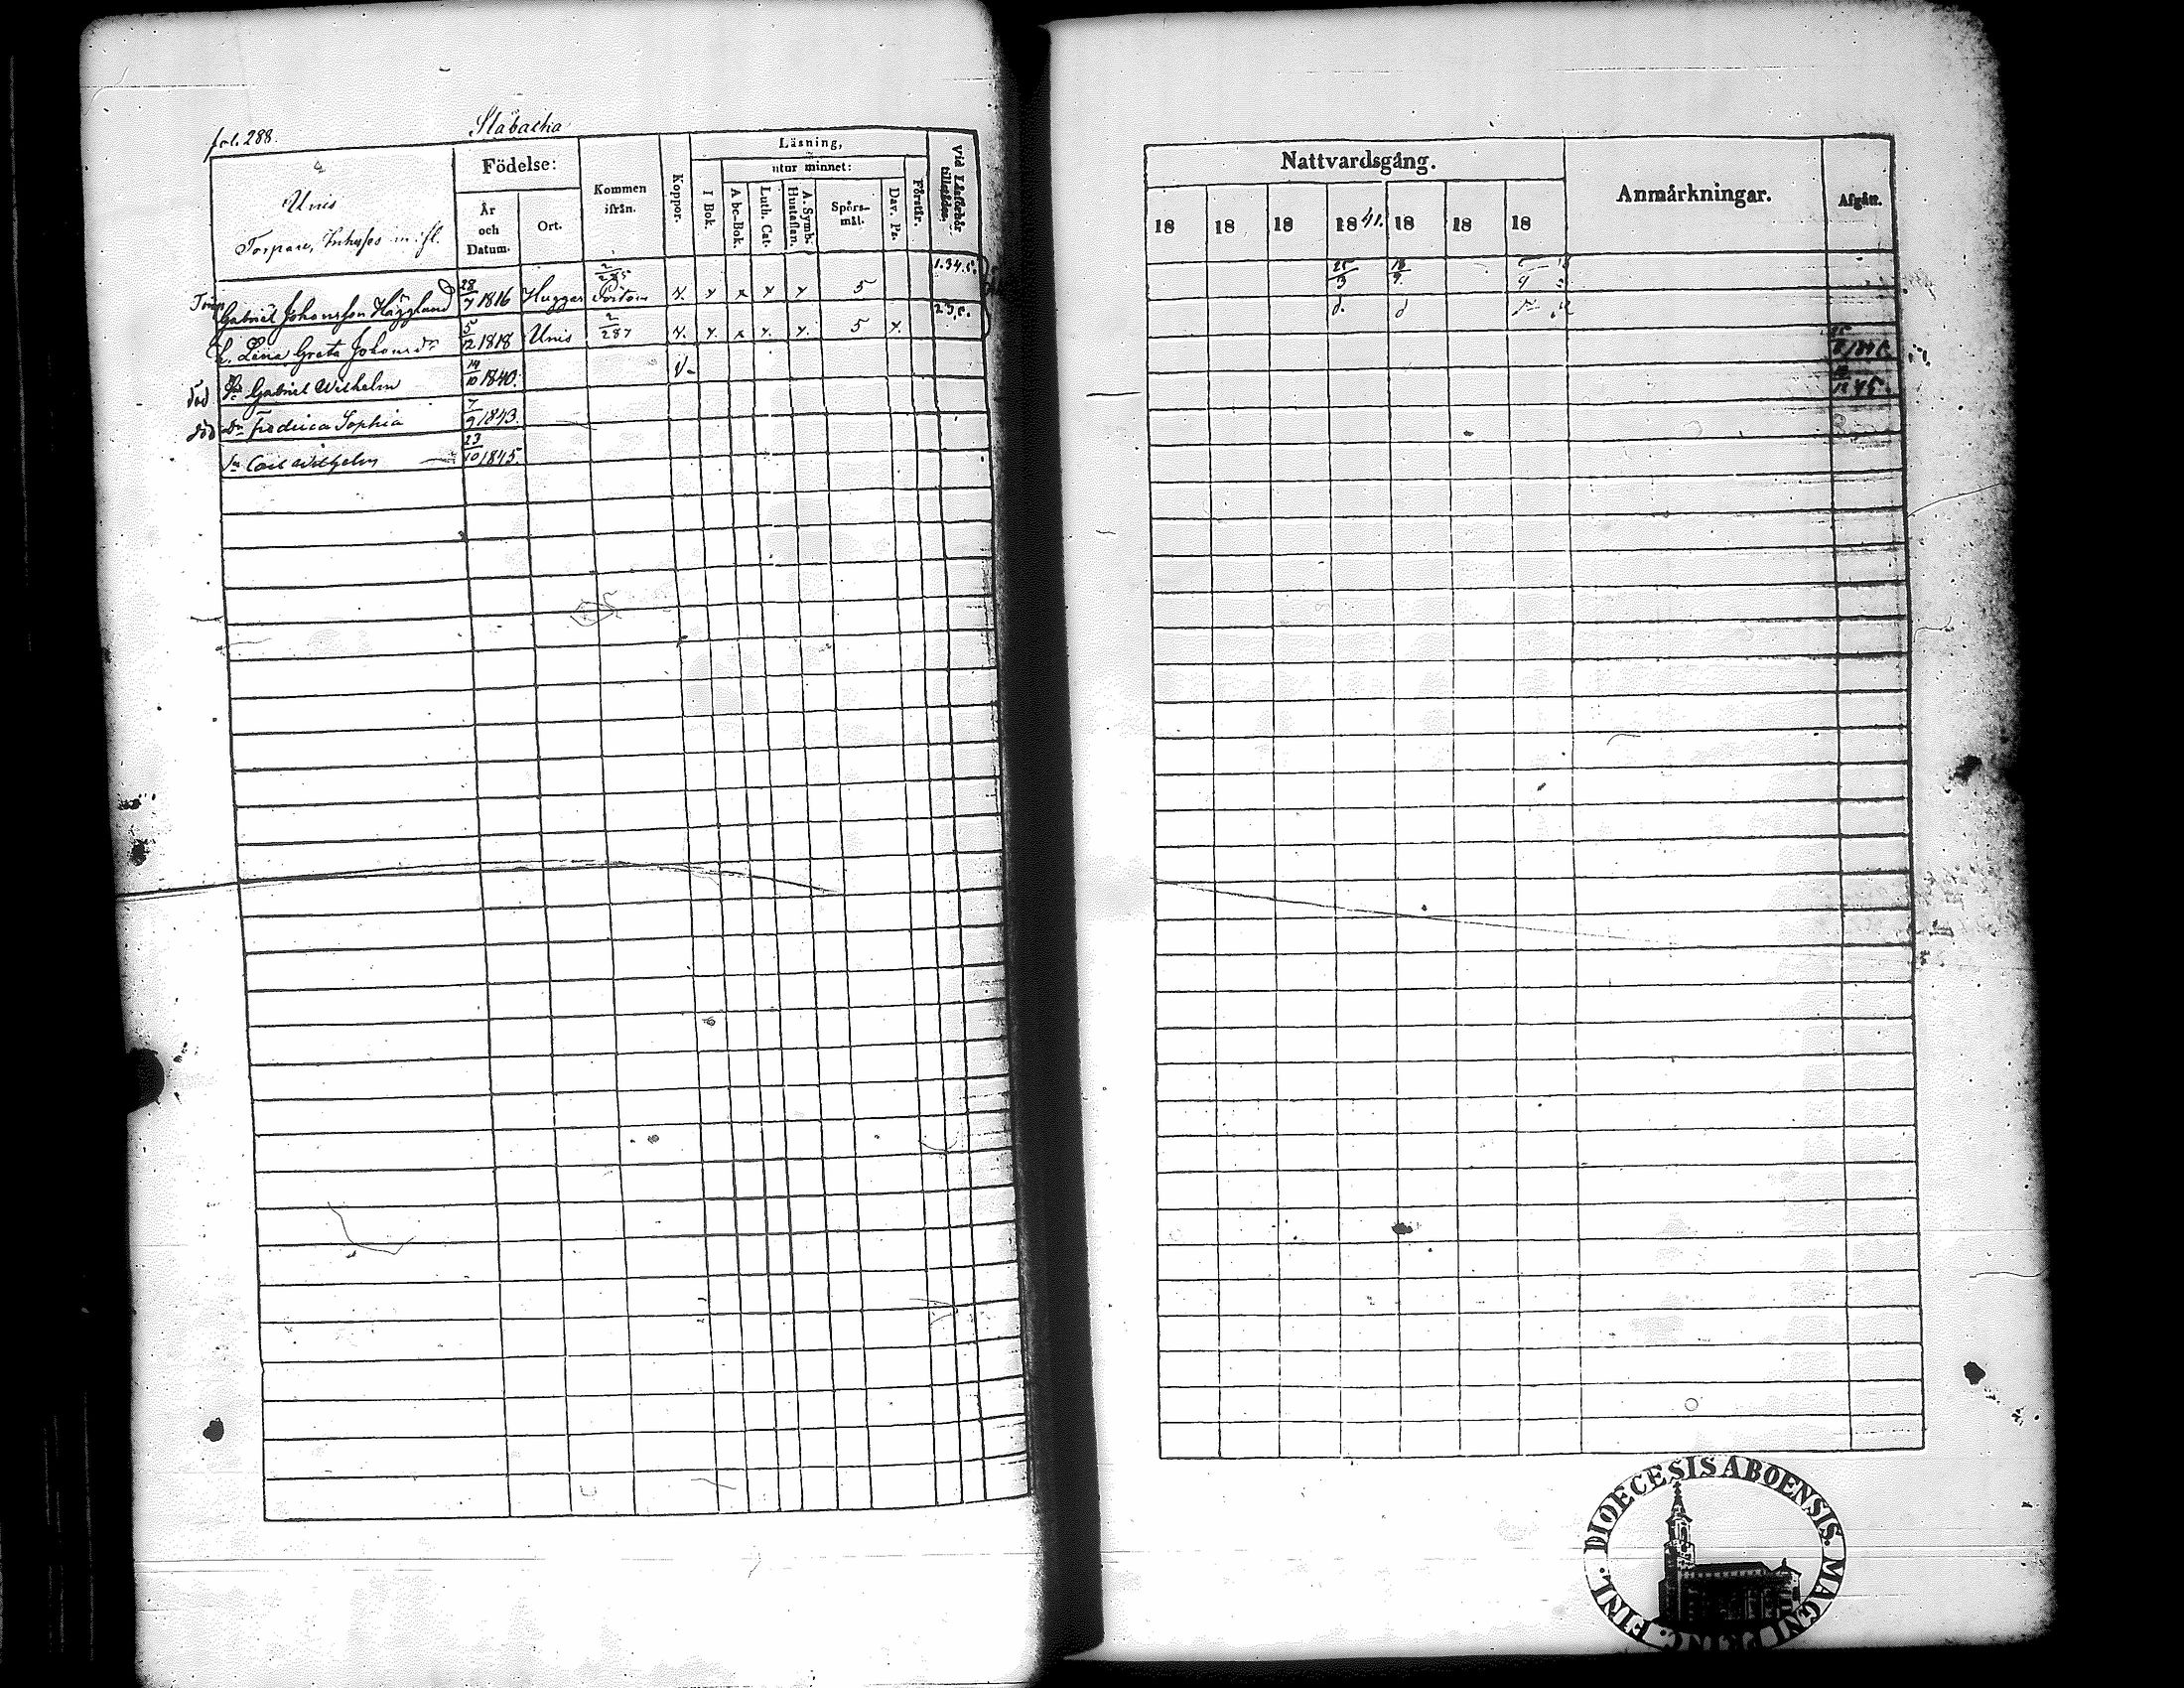 fol. 288.
Släbacka
Unis
Torpare, Inhyses m. fl.
Födelse:
År och Datum.
Ort.
Kommen ifrån.
Koppor.
Läsning,
utur minnet:
I Bok.
A bc-Bok.
Luth. Cat.
A. Symb. Hustaflan.
Spörs-mål.
Dav. Ps.
Förstår.
Vid Läsförhör tillstädes.
Gabriel Johansson Hägglund 28/7 1816 Hugger 2/285 v. x x x x 5 1.3.4.5.
h. Lena Greta Johansdr 5/2 1818 Unis 2/287 v. x. x x. x. 5 x. 2.3.5.
död Sn Gabriel Wilhelm 14/10 1840. v.
död Dr Fredrica Sophia 7/9 1843.
Sn Carl Wilhelm 23/10 1845.
Nattvardsgång.
Anmärkningar.
Afgått.
18 18 18 1841. 18 18 18
d. d
45.
DIOECESIS ABOENSIS. MAGNI PRINC. FINL.